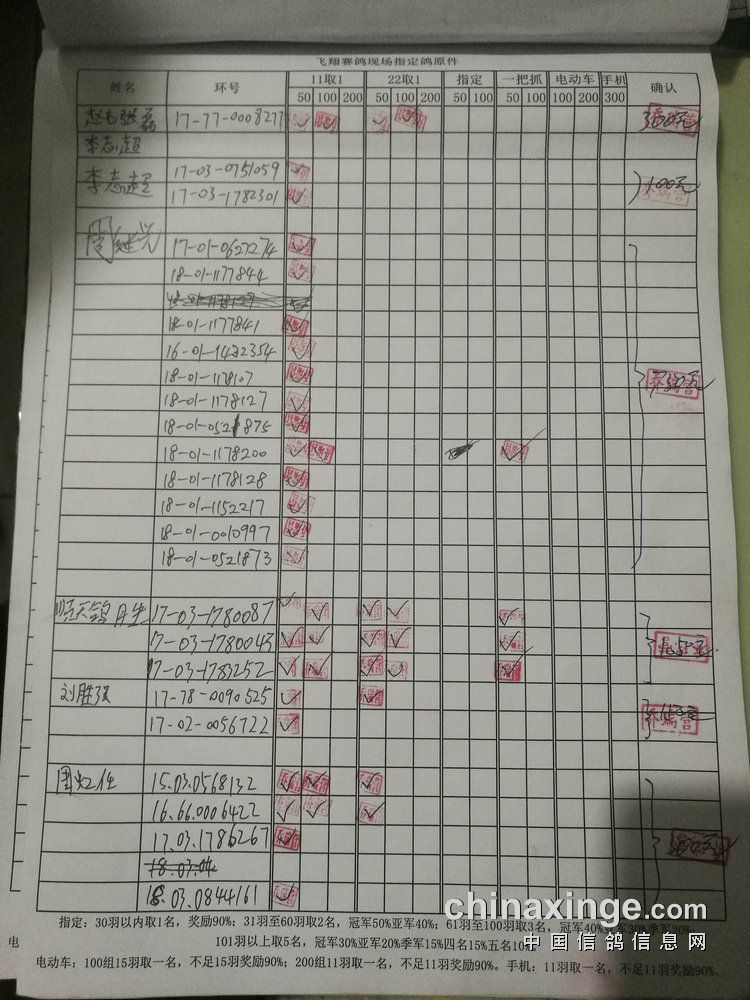 飞翔赛鸽现场指定鸽原件
姓名 环号 11取1 22取1 指定 一把抓 电动车 手机 确认
50 100 200 50 100 200 50 100 50 100 100 200 300
17-77-0008277
李志超
李志超 17-03-0751059
17-03-1782301 100元
周继兴 17-01-0627274
18-01-1177844
18-01-1177841
16-01-1432354
18-01-1178107
18-01-1178127
18-01-0521875
18-01-1178200
18-01-1178128
18-01-1152217
18-01-0010997
18-01-0521873
17-03-1780087
17-03-1780043
17-03-1783252
刘胜强 17-78-0090525
17-02-0056722
15.03.0568132
16.66.0006422
17.03.1786267
18.03.0844161
指定：30羽以内取1名，奖励90%；31羽至60羽取2名，冠军50%亚军40%；61羽至100羽取3名，冠军40%亚军30%季军20%
101羽以上取5名，冠军30%亚军20%季军15%四名15%五名10%
电
电动车：100组15羽取一名，不足15羽奖励90%；200组11羽取一名，不足11羽奖励90%。手机：11羽取一名，不足11羽奖励90%.
chinaxinge.com
中国信鸽信息网